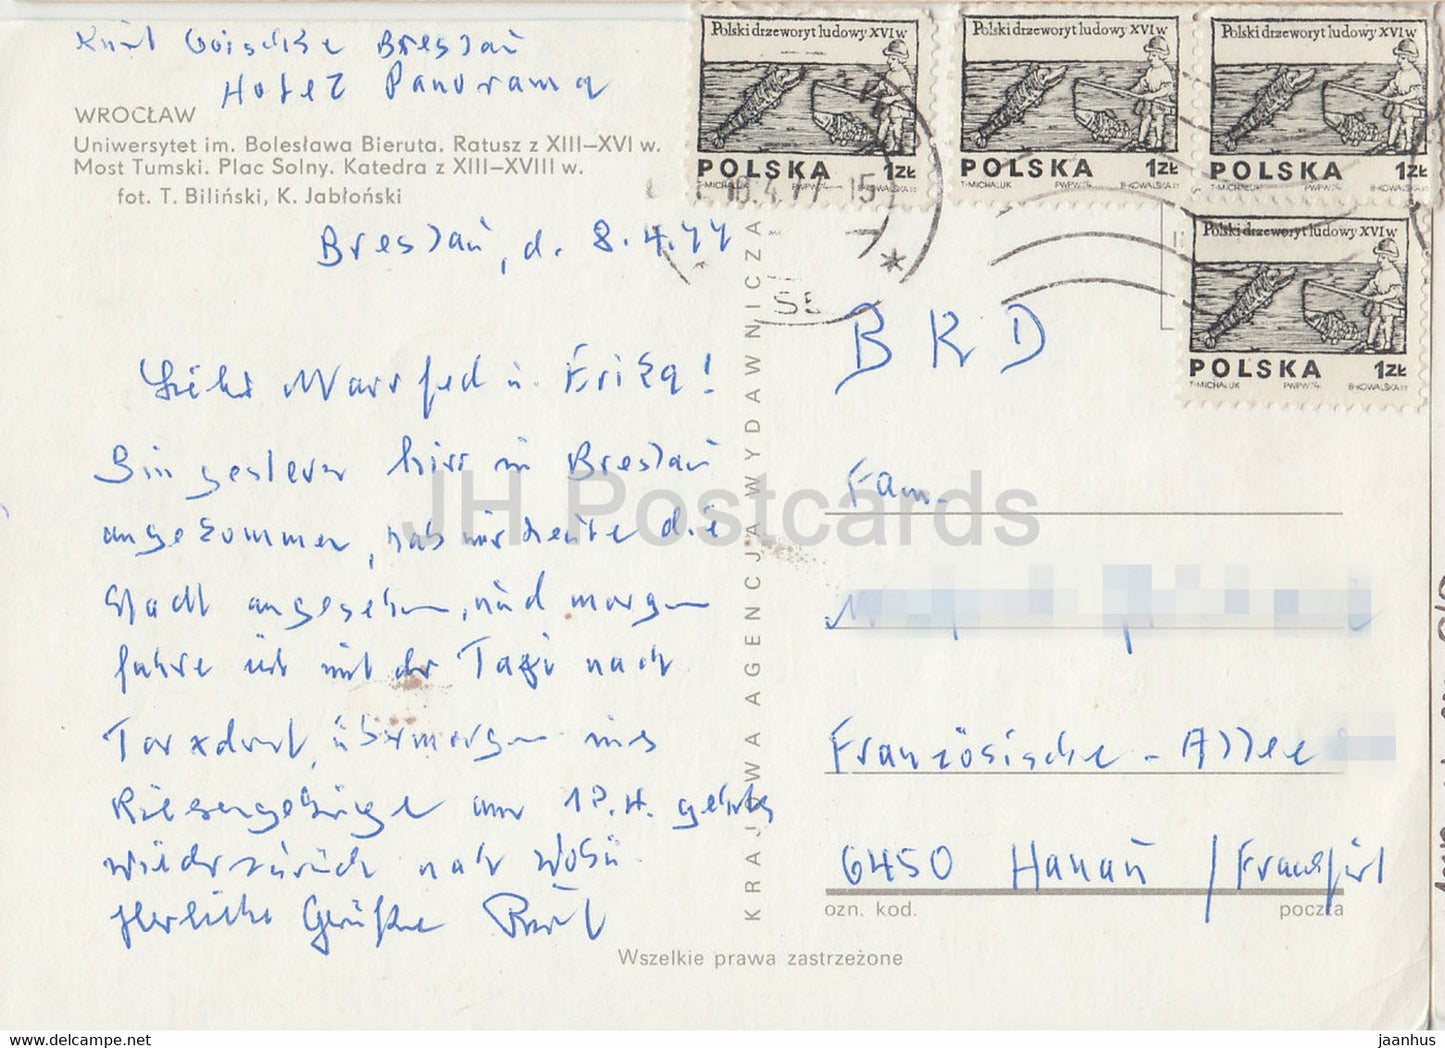 Breslau
Hotel Panorama
WROCŁAW
Uniwersytet im. Bolesława Bieruta. Ratusz z XIII—XVI w.
Most Tumski. Plac Solny. Katedra z XIII—XVIII w.
fot. T. Biliński, K. Jabłoński
Breslau, d. 8.4.77
Liebe Manfred u. Erika!
Bin gestern hier in Breslau
angekommen, hab mir heute die
Stadt angesehen, und morgen
fahre ich mit der Taxi nach
übermorgen ins
Riesengebirge am 12.4. geht's
wieder zurück nach
Herzliche Grüße
KRAJOWA AGENCJA WYDAWNICZA
Wszelkie prawa zastrzeżone
Polski drzeworyt ludowy XVI w
POLSKA 1ZŁ
T-MICHALUK PWPW'74 B-KOWALSKA
Polski drzeworyt ludowy XVI w
POLSKA 1ZŁ
T-MICHALUK PWPW'74 B-KOWALSKA
Polski drzeworyt ludowy XVI w
POLSKA 1ZŁ
T-MICHALUK PWPW'74 B-KOWALSKA
Polski drzeworyt ludowy XVI w
POLSKA 1ZŁ
T-MICHALUK PWPW'74 B-KOWALSKA
BRD
Fam.
Französische-Allee
6450 Hanau / Frankfurt
ozn. kod. poczta
JH Postcards
www.delcampe.net
jaanhus